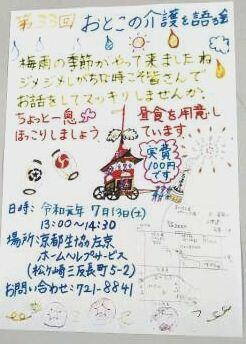 第33回 おとこの介護を語る会
梅雨の季節がやって来ましたね
ジメジメしがちな時こそ皆さんで
お話をしてスッキリしませんか。
ちょっと一息
ほっこりしましょう
昼食を用意し
ています。
実費
100円
です
日時: 令和元年7月13日(土)
13:00~14:30
場所:京都生協左京
ホームヘルプサービス
(松ケ崎三反長町5-2)
お問い合わせ:721-8841